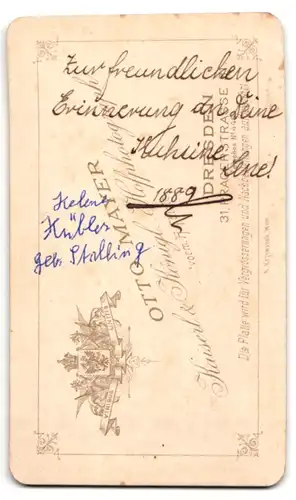 Zur freundlichen
Erinnerung an Deine
Lene!
1889
Helene
Hübler
geb. Stalling
OTTO MAYER
Kaiserl. & Königl. Hofphotograph
DRESDEN
31, PRAGERSTRASSE
Die Platte wird für Vergrösserungen und Nachbestellungen aufbewahrt